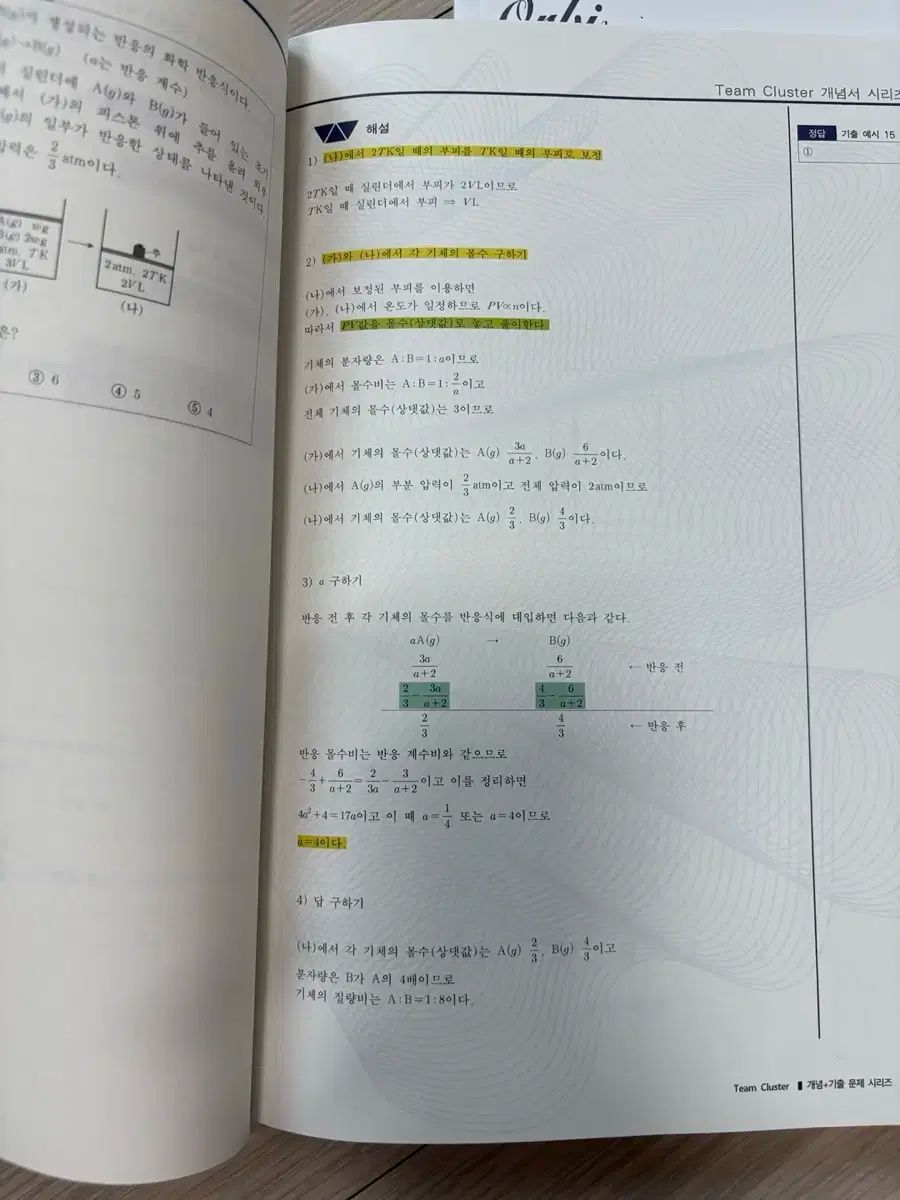 이 생성되는 반응의 화학 반응식이다.
(a는 반응 계수)
실린더에 A(g)와 B(g)가 들어 있는 초기
에서 (가)의 피스톤 위에 추를 올려
(g)의 일부가 반응한 상태를 나타낸 것이다.
압력은 2/3 atm이다.
A(g) wg
B(g) 2wg
atm, TK
3VL
(가)
→
추
2atm, 2TK
2VL
(나)
은?
③ 6
④ 5
⑤ 4
Team Cluster 개념서 시리즈
해설
1) (나)에서 2TK일 때의 부피를 TK일 때의 부피로 보정
2TK일 때 실린더에서 부피가 2VL이므로
TK일 때 실린더에서 부피 ⇒ VL
2) (가)와 (나)에서 각 기체의 몰수 구하기
(나)에서 보정된 부피를 이용하면
(가), (나)에서 온도가 일정하므로 PV∝n이다.
따라서 PV값을 몰수(상댓값)로 놓고 풀이한다.
기체의 분자량은 A:B=1:a이므로
(가)에서 몰수비는 A:B=1:2/a이고
전체 기체의 몰수(상댓값)는 3이므로
(가)에서 기체의 몰수(상댓값)는 A(g) 3a/(a+2), B(g) 6/(a+2)이다.
(나)에서 A(g)의 부분 압력이 2/3 atm이고 전체 압력이 2atm이므로
(나)에서 기체의 몰수(상댓값)는 A(g) 2/3, B(g) 4/3이다.
3) a 구하기
반응 전 후 각 기체의 몰수를 반응식에 대입하면 다음과 같다.
aA(g) → B(g)
3a/(a+2) 6/(a+2) ← 반응 전
2/3 - 3a/(a+2) 4/3 - 6/(a+2)
2/3 4/3 ← 반응 후
반응 몰수비는 반응 계수비와 같으므로
-4/3 + 6/(a+2) = 2/3a - 3/(a+2)이고 이를 정리하면
4a²+4=17a이고 이 때 a=1/4 또는 a=4이므로
a=4이다.
4) 답 구하기
(나)에서 각 기체의 몰수(상댓값)는 A(g) 2/3, B(g) 4/3이고
분자량은 B가 A의 4배이므로
기체의 질량비는 A:B=1:8이다.
정답 기출 예시 15
①
Team Cluster ▮ 개념+기출 문제 시리즈